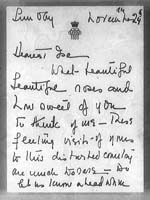 Sunday
Dearest Joe
What beautiful
beautiful roses and
how sweet of you
to think of me — These
feeling visits of yours
to this distorted country
are much too rare — Do
let us know ahead